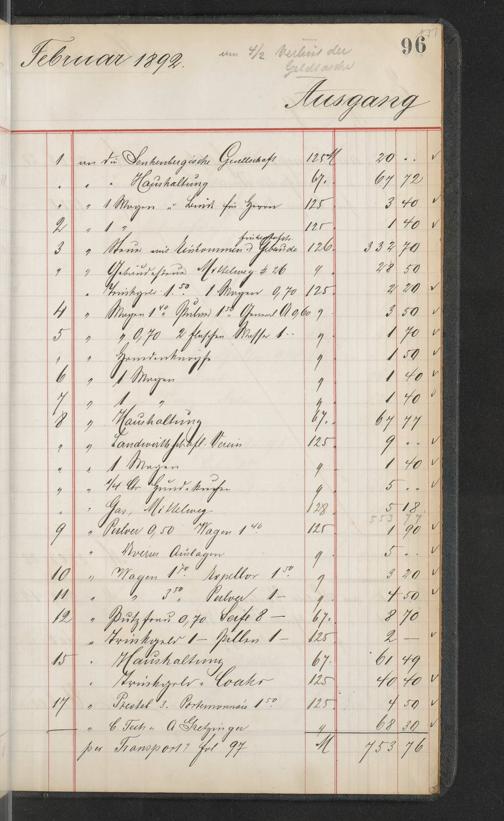 96
Februar 1892. um 4/2 Verlust der
Geldtasche
Ausgang
1 an die Senkenbergische Gesellschaft 125 M 20 ..
" " Haushaltung 67. 67 72
" " 1 Wagen u für Herrn 125 3 40
2 " 1 " 125 1 40
3 " Steuer Einkommen Gebäude 126 332 70
" " Gebäudesteuer Mittelweg # 26 " 28 50
" Trinkgeld 1.50 1 Wagen 0,70 125. 2 20
4 " Wagen 1 40 Pulver 1 50 General A 0,60 " 3 50
5 " " 0,70 2 flaschen Wasser 1.. " 1 70
" " Hemdenknöpfe " 1 50
6 " 1 Wagen " 1 40
7 " 1 " " 1 40
8 " Haushaltung 67. 67 77
" " Landwirthschaftl. Verein 125 9 ..
" " 1 Wagen " 1 40
" " 1/4 Ctr Hundekuchen " 5 ..
" Gas, Mittelweg 128 5 18
9 " Pulver 0,50 Wagen 1 40 125 1 90
" Diverse Auslagen " 5 ..
10 " Wagen 1 70 Expellor 1 50 " 3 20
11 " " 3 50 Pulver 1- " 4 50
12 " Putzfrau 0,70 Seife 8 — 67. 8 70
" Trinkgeld 1 — Pillen 1 — 125 2 —
15 " Haushaltung 67. 61 49
" Trinkgeld u Coaks 125 40 40
17 " Prestel 3. Portemonnais 1 50 125 4 50
" C Tech u A Gretzinger " 68 30
per Transport fol 97 M 753 76